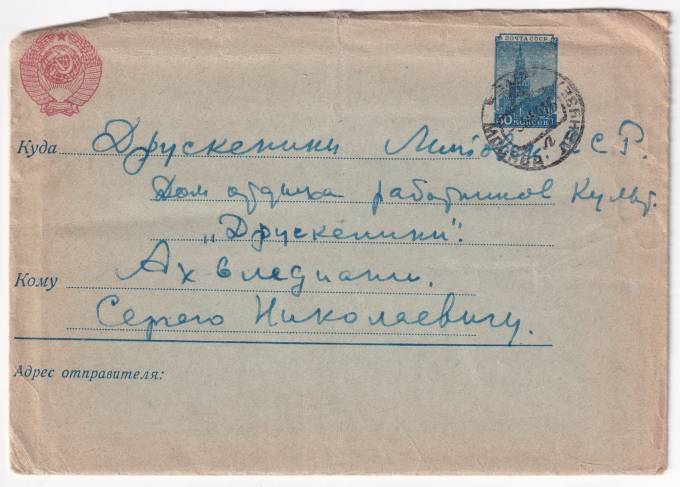 ПОЧТА СССР
40 КОПЕЕК
МОСКВА
Куда Друскеники С Р.
Дом отдыха работников Культ.
„Друскеники".
Кому Ахвледиани.
Серго Николаевичу.
Адрес отправителя: